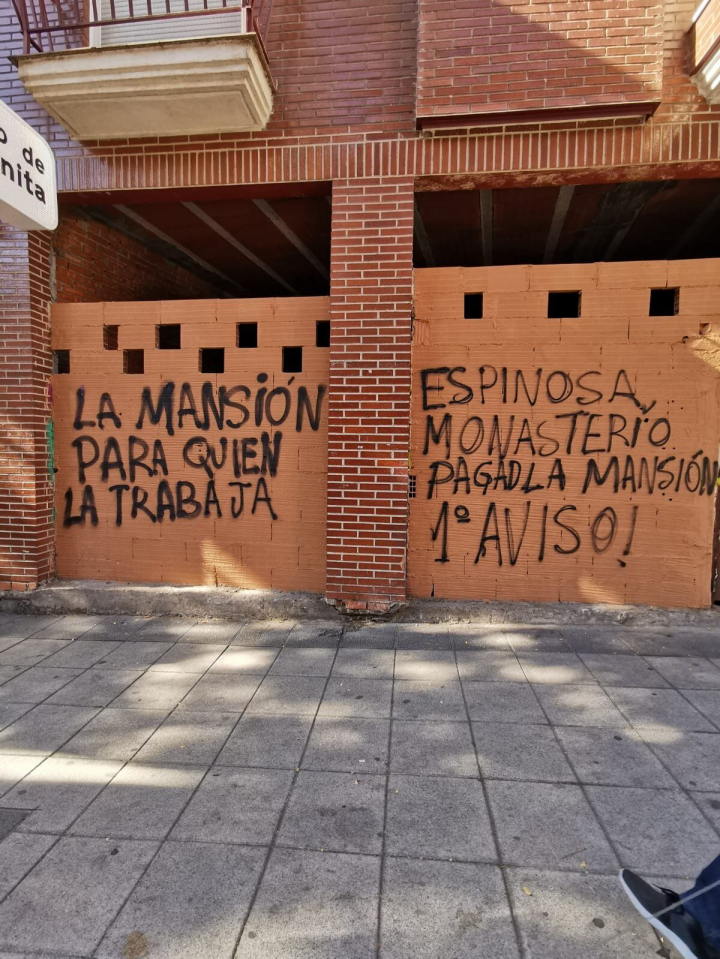 o de
nita
LA MANSIÓN
PARA QUIEN
LA TRABAJA
ESPINOSA,
MONASTERIO
PAGADLA MANSIÓN
1º AVISO!